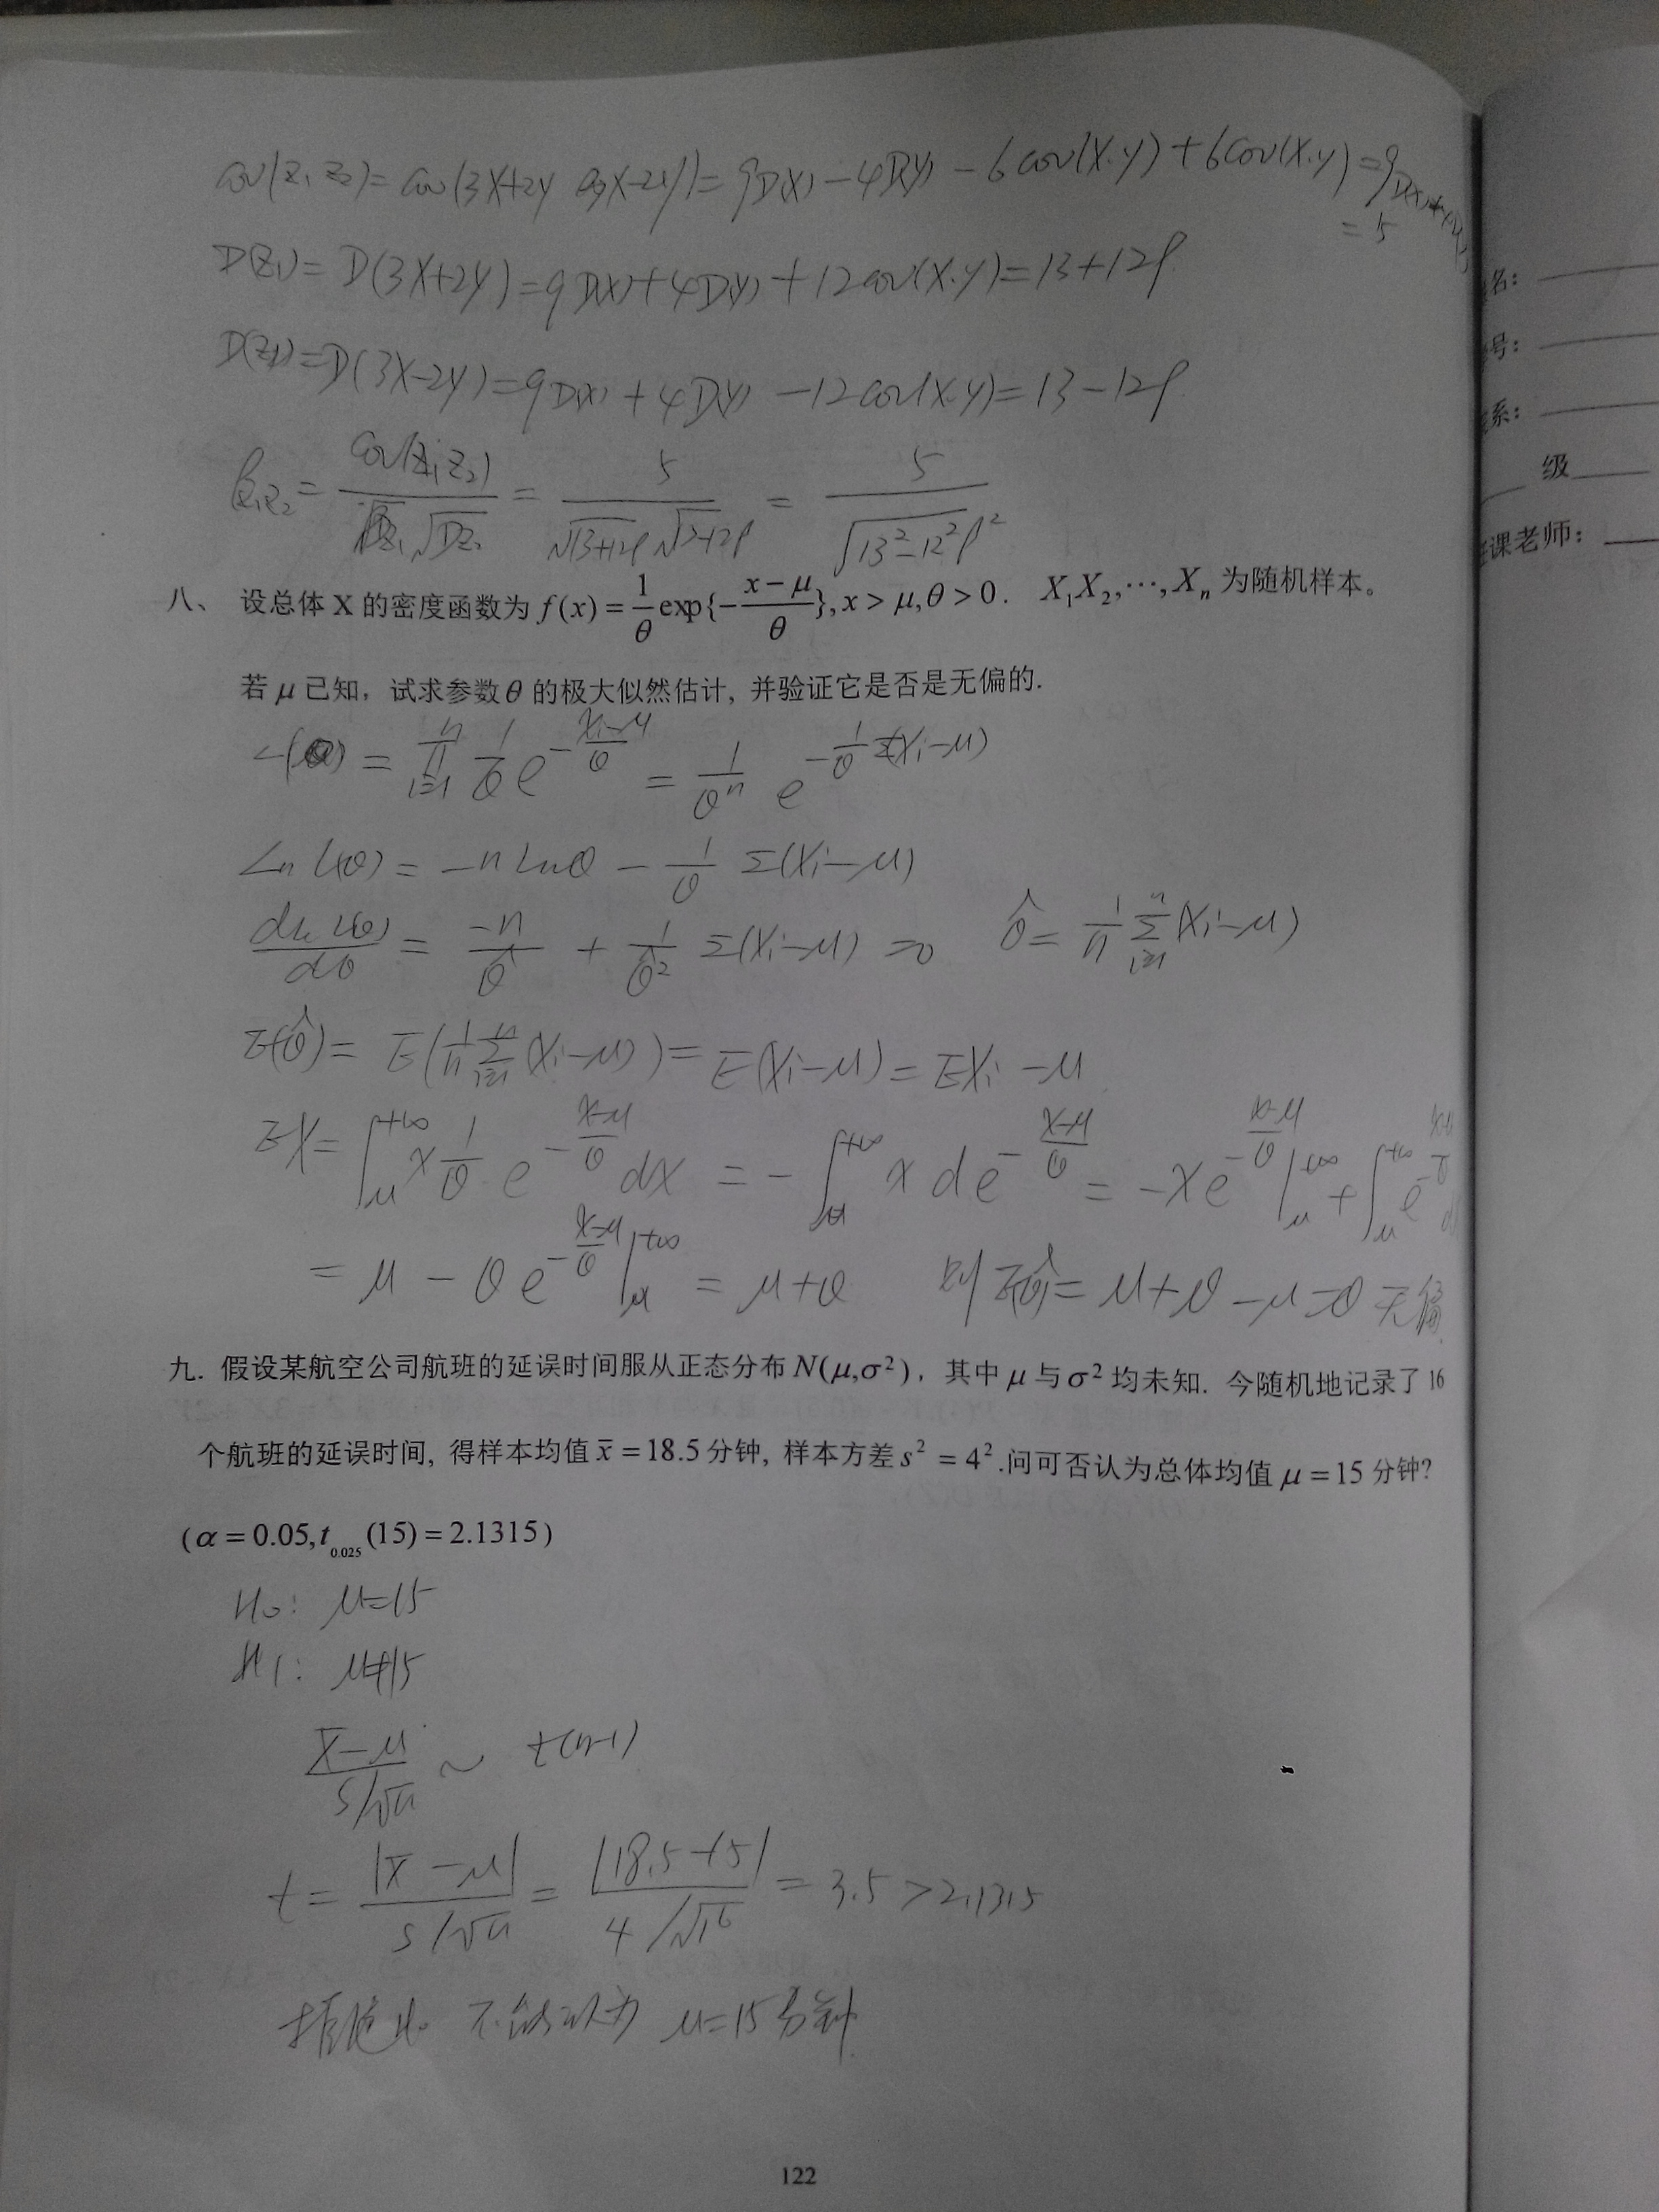 cov(Z₁ Z₂) = cov(3X+2Y 3X-2Y) = 9D(X) - 4D(Y) - 6cov(X.Y) + 6cov(X.Y) = 9
= 5
D(Z₁) = D(3X+2Y) = 9D(X) + 4D(Y) + 12cov(X.Y) = 13+12ρ
D(Z₂) = D(3X-2Y) = 9D(X) + 4D(Y) - 12cov(X.Y) = 13-12ρ
ρ_{Z₁Z₂} = \frac{cov(Z₁Z₂)}{\sqrt{DZ₁}\sqrt{DZ₂}} = \frac{5}{\sqrt{13+12ρ}\sqrt{13-12ρ}} = \frac{5}{\sqrt{13²-12²ρ²}}
八、 设总体 X 的密度函数为 f(x) = \frac{1}{θ} exp{-\frac{x-μ}{θ}}, x > μ, θ > 0. X₁X₂,⋯,Xₙ 为随机样本。
若 μ 已知, 试求参数 θ 的极大似然估计, 并验证它是否是无偏的.
L(θ) = \prod_{i=1}^{n} \frac{1}{θ} e^{-\frac{Xi-μ}{θ}} = \frac{1}{θ^n} e^{-\frac{1}{θ}Σ(Xi-μ)}
Ln L(θ) = -n Lnθ - \frac{1}{θ} Σ(Xi-μ)
\frac{dLn L(θ)}{dθ} = \frac{-n}{θ} + \frac{1}{θ²} Σ(Xi-μ) = 0 \hat{θ} = \frac{1}{n} \sum_{i=1}^{n}(Xi-μ)
E(\hat{θ}) = E(\frac{1}{n}\sum_{i=1}^{n}(Xi-μ)) = E(Xi-μ) = EXi - μ
EX = \int_{μ}^{+∞} x \frac{1}{θ} e^{-\frac{x-μ}{θ}} dx = -\int_{μ}^{+∞} x d e^{-\frac{x-μ}{θ}} = -xe^{-\frac{x-μ}{θ}} |_{μ}^{+∞} + \int_{μ}^{+∞} e^{-\frac{x-μ}{θ}} d
= μ - θe^{-\frac{x-μ}{θ}} |_{μ}^{+∞} = μ+θ 则 E(\hat{θ}) = μ+θ-μ = θ 无偏
九. 假设某航空公司航班的延误时间服从正态分布 N(μ,σ²), 其中 μ 与 σ² 均未知. 今随机地记录了 16
个航班的延误时间, 得样本均值 x̄ = 18.5 分钟, 样本方差 s² = 4².问可否认为总体均值 μ = 15 分钟?
(α = 0.05, t_{0.025}(15) = 2.1315)
H₀: μ=15
H₁: μ≠15
\frac{\bar{X}-μ}{S/\sqrt{n}} ~ t(n-1)
t = \frac{|\bar{X}-μ|}{S/\sqrt{n}} = \frac{|18.5-15|}{4/\sqrt{16}} = 3.5 > 2.1315
拒绝H₀ 不能认为 μ=15分钟
122
名:
号:
系:
级
课老师: